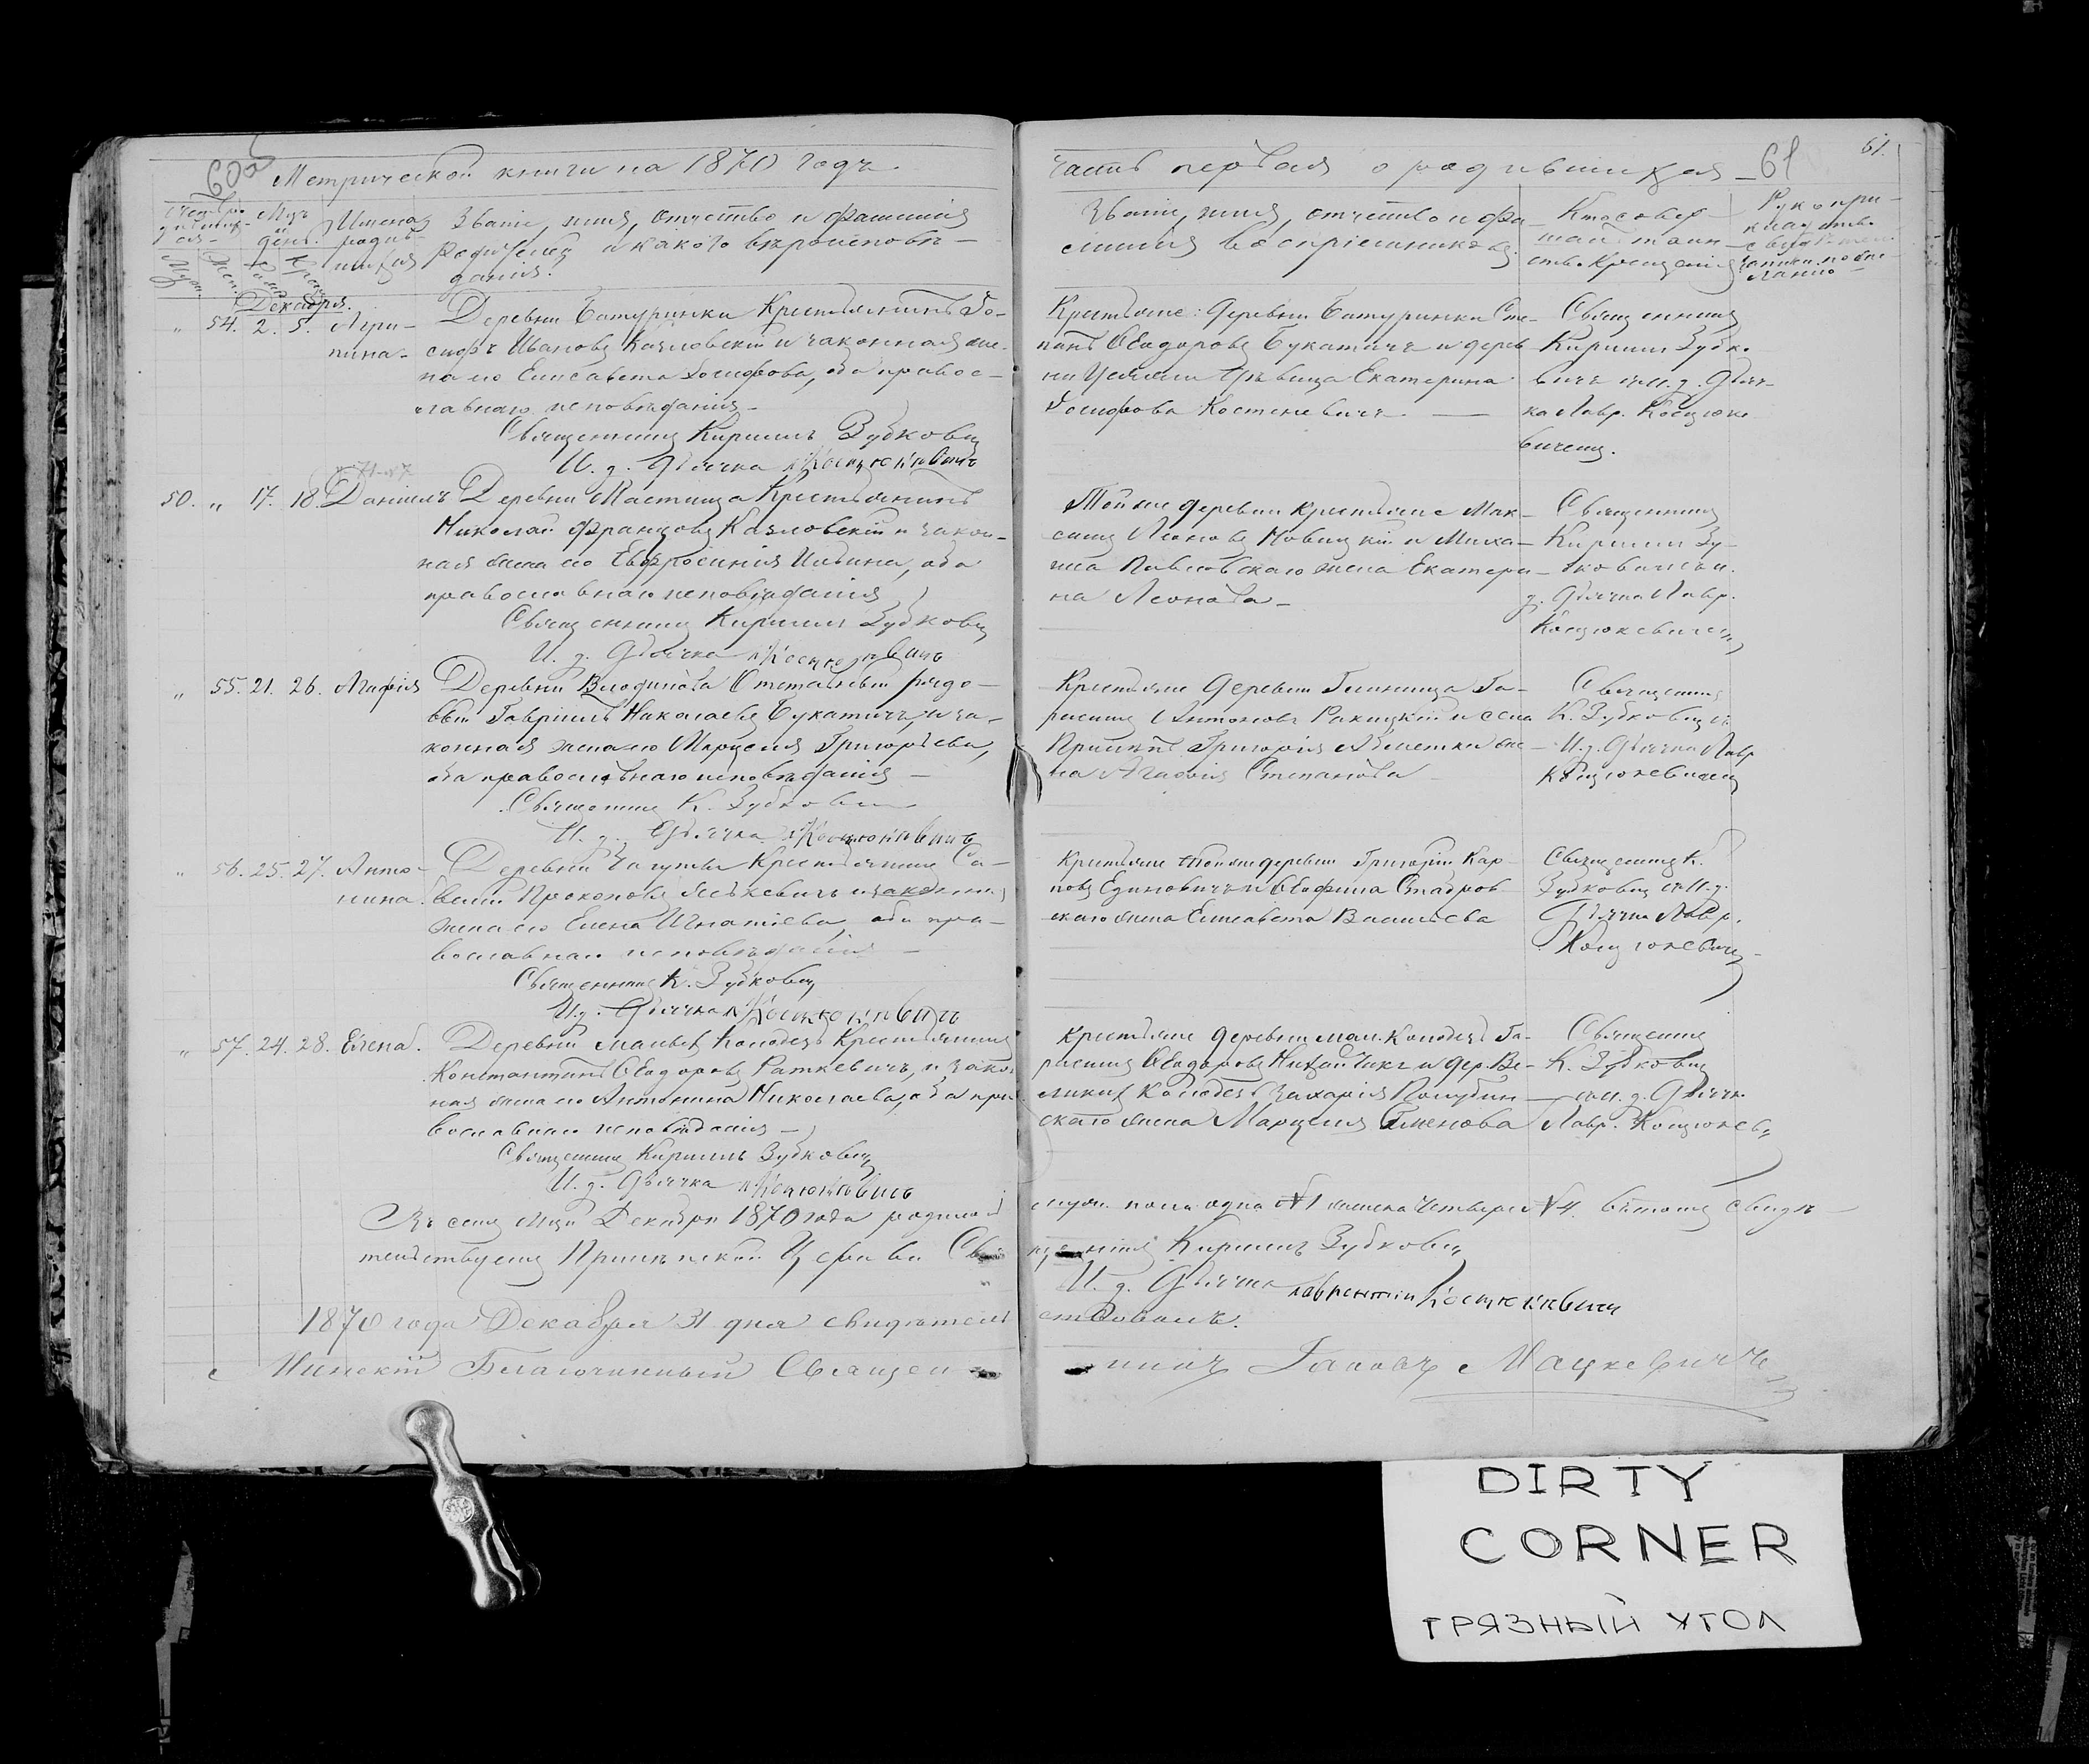 60об
Метрической книги на 1870 годъ.
Мѣсяцъ
день.
Имена родив-
шихся
Званіе, имя, отчество и фамилія
родителей и какого вѣроисповѣ-
данія.
Декабря.
„ 54. 2. 5. Агри-
пина
Деревни Батуринки Крестьянинъ Іо-
сифъ Ивановъ Козловскій и законная же-
на его Елисавета Іосифова, оба правос-
лавнаго исповѣданія
Священникъ Кириллъ Зубковичъ
И. д. Дьячка Л Косцюкевичъ
50. „ 17. 18. Даніилъ
Деревни Мастища Крестьянинъ
Николай Францовъ Козловскій и закон-
ная жена его Евфросинія Ильина, оба
православнаго исповѣданія
Священникъ Кириллъ Зубковичъ
И. д. Дьячка Л Косцюкевичъ
„ 55. 21. 26. Агафія
Деревни
Гавріилъ Николаевъ Букатичъ и за-
конная жена его Марцеля Григорьева,
оба православнаго исповѣданія
Священникъ К. Зубковичъ
И. д. Дьячка Л Косцюкевичъ
„ 56. 25. 27. Анто-
нина
Деревни Крестьянинъ Са-
велій Прокоповъ и законная
жена его Елена Игнатіева, оба пра-
вославнаго исповѣданія
Священникъ К. Зубковичъ
И. д. Дьячка Л Косцюкевичъ
„ 57. 24. 28. Елена.
Деревни Малыхъ Колодезь Крестьянинъ
Константинъ Ѳеодоровъ Раткевичъ, и закон
ная жена его Антонина Николаева, оба пра
вославнаго исповѣданія
Священникъ Кириллъ Зубковичъ
И. д. Дьячка Л Косцюкевичъ
Въ семъ мѣсяцѣ Декабрѣ 1870 года родилось
тельствуемъ Церкви Свя
1870 года Декабря 31 дня свидѣтель
Минскій Благочинный Священ
61.
часть первая о родившихся 61
Званіе, имя, отчество и фа-
милія воспріемниковъ
Кто совер-
шалъ таин-
ство Крещенія
Рукопри-
кладство
свидѣтелей
записи по же-
ланію
Крестьяне: деревни Батуринки Сте-
панъ Ѳеодоровъ Букатичъ и дерев
ни дѣвица Екатерина
Іосифова Костеневичъ
Священникъ
Кириллъ Зубко
вичъ съ И. д. Дьяч-
ка Лавр. Косцюке
вичемъ.
Той же деревни крестьяне Мак-
симъ Леоновъ Новицкій и Миха-
ила Павловскаго жена Екатери-
на Леонова
Священникъ
Кириллъ Зу-
бковичъ съ и.
д. Дьячка Лавр.
Косцюкевичемъ
Крестьяне деревни Глинища Га-
расимъ Антоновъ Ракицкій и села
Григорія же-
на Агафія Степанова
Священникъ
К. Зубковичъ съ
И. д. Дьячка Лавр
Косцюкевичемъ
Крестьяне той же деревни Григорій Кар-
повъ Единовичъ и Ѳеофила
скаго жена Елисавета Васильева
Священникъ К.
Зубковичъ съ И. д.
Дьячка Лавр.
Косцюкевичемъ
Крестьяне деревни мал. Колодезь Га-
расимъ Ѳеодоровъ и дер. Ве-
ликихъ Колодезь Захарія Голубин
скаго жена Марцеля Семенова
Священникъ
К. Зубковичъ
съ И. д. Дьячка
Лавр. Косцюкев
муж. пола одна №1 женска четверо №4. въ томъ свидѣ-
Кириллъ Зубковичъ
И. д. Дьячка Лаврентій Косцюкевичъ
ствовалъ.
никъ Іаковъ Мацкевичъ
DIRTY
CORNER
ГРЯЗНЫЙ УГОЛ